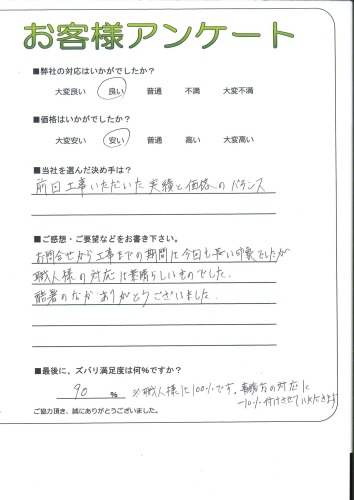 お客様アンケート
■弊社の対応はいかがでしたか？
大変良い　良い　普通　不満　大変不満
■価格はいかがでしたか？
大変安い　安い　普通　高い　大変高い
■当社を選んだ決め手は？
前回工事いただいた実績と価格へのバランス
■ご感想・ご要望などをお書き下さい。
お問合せから工事までの期間は今回も長い印象でしたが
職人様の対応は素晴らしいものでした。
酷暑のなかありがとうございました。
■最後に、ズバリ満足度は何%ですか？
90 % ※職人様は100%です。事務方の対応に
-10%付けさせていただきます
ご協力頂き、誠にありがとうございました。